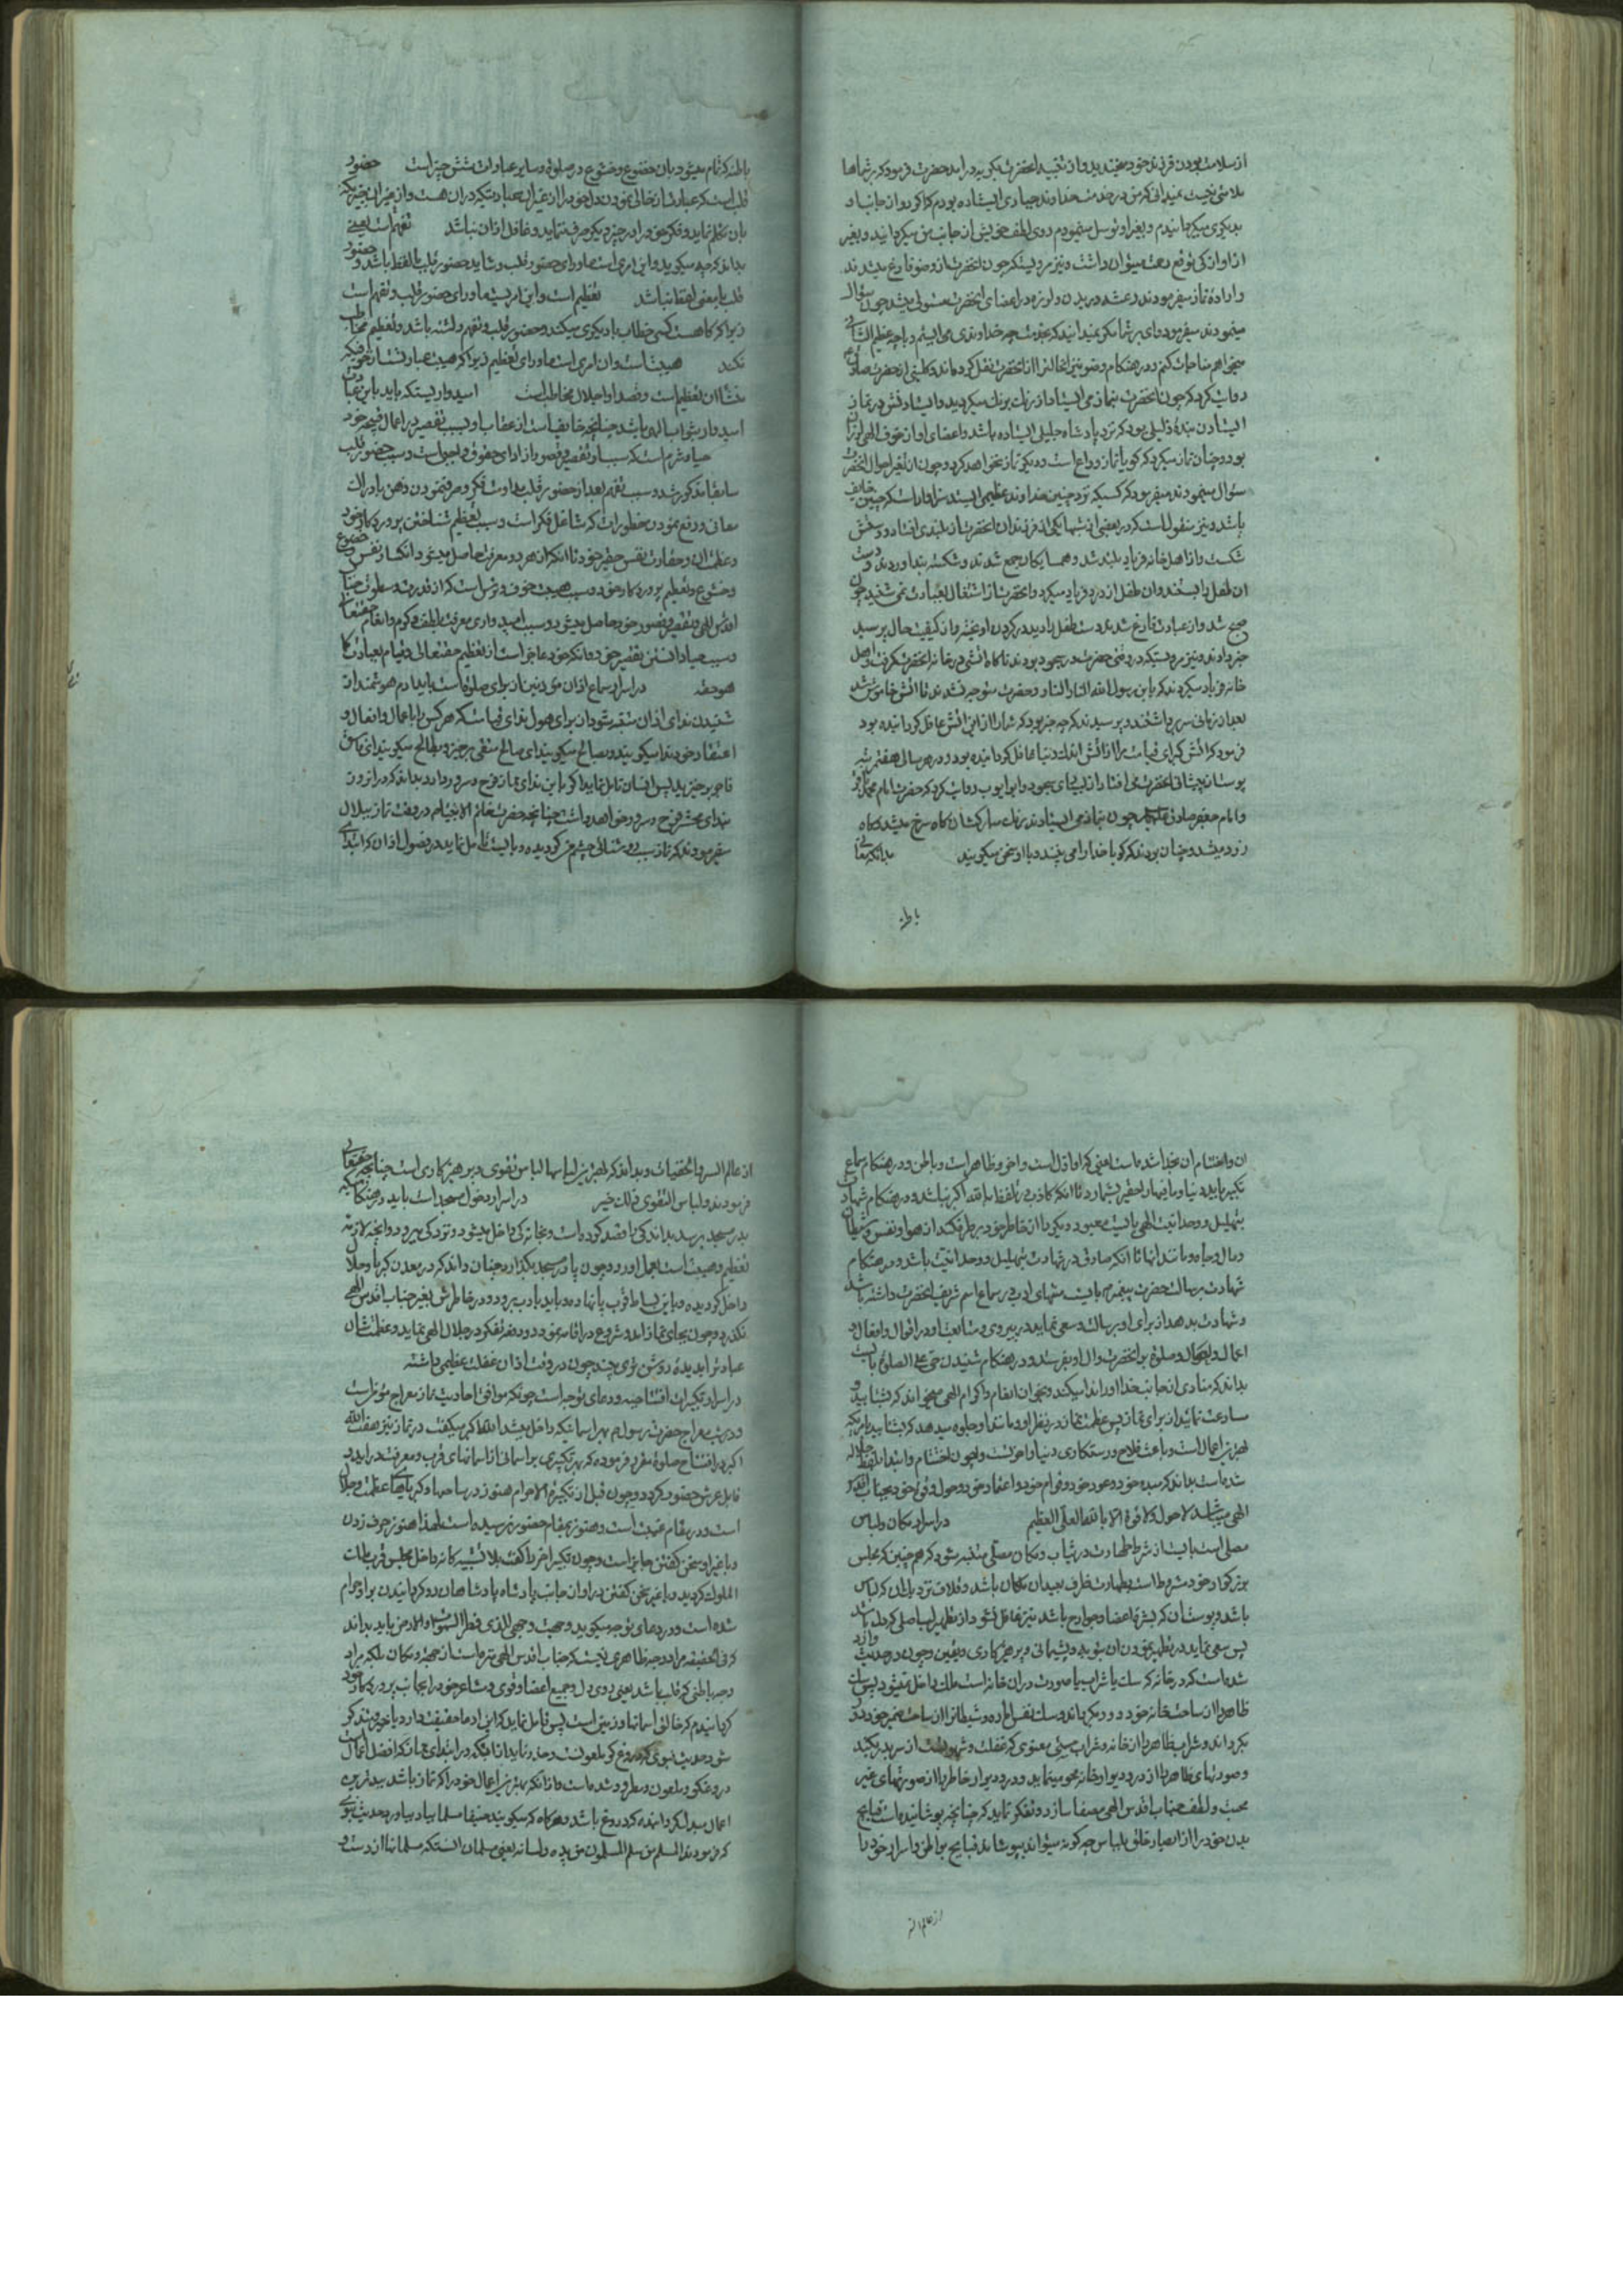 از سلامت بودن فرزند خود بخندید و از تقیید انحضرت بگریه درامد حضرت فرمود که بر شماها
ملامتی نیست نمیدانی که من در خدمت خداوند جباری ایستاده بودم که اگر رو از جانب او
بدیگری میگردانیدم و بغیر او توسل مینمودم روی لطف خویش از جانب من میگردانید و بغیر
از او از کی توقع رحمت میتوان داشت و نیز مرویست که چون انحضرت از وضو فارغ میشدند
و اراده نماز میفرمودند رعشه در بدن و لرزه در اعضای انحضرت مستولی میشد چون سؤال
مینمودند میفرمود وای بر شما مگر نمیدانید که بخدمت چه خداوندی می ایستم و با چه عظیم الشانی
میخواهم مناجات کنم و در هنگام وضو نیز این حالت را از انحضرت نقل کرده اند و کلینی از حضرت صادق
روایت کرد که چون انحضرت بنماز می ایستاد از رنک برنک میگردید و ایستادنش در نماز
ایستادن بنده ذلیلی بود که نزد پادشاه جلیلی ایستاده باشد و اعضای او از خوف الهی لرزان
بود و چنان نماز میکرد که گویا نماز وداع است و دیگر نماز نخواهد کرد و چون از تغیر احوال انحضرت
سؤال مینمودند میفرمود که کسیکه نزد چنین خداوند عظیمی ایستد سزاوار است که چنین خایف
باشد و نیز منقول است که در بعضی از شبها یکی از فرزندان انحضرت از بلندی افتاد و دستش
شکست و از اهل خانه فریاد بلند شد و همسایگان جمع شدند و شکسته بند اوردند و دست
ان طفل را بستند و ان طفل از درد فریاد میکرد و انحضرت از اشتغال بعبادت نمی شنید چون
صبح شد و از عبادت فارغ شدند دست طفل را دید در گردن او بسته و از کیفیت حال پرسید
خبر دادند و نیز مرویست که در وقتی حضرت در سجود بودند ناگاه اتشی در خانه انحضرت گرفت و اهل
خانه فریاد میکردند که یابن رسول الله النار النار و حضرت متوجه نشدند تا اتش خاموش شد
بعد از زمانی سر برداشتند و پرسیدند که چه چیز بود که شما را از این اتش غافل گردانیده بود
فرمود که اتش کبرای قیامت مرا از اتش اندک دنیا غافل گردانیده بود و در هر سالی هفت مرتبه
پوست از پیشانی انحضرت می افتاد از بسیاری سجود و ابو ایوب روایت کرد که حضرت امام محمد باقر
و امام جعفر صادق علیهما السلام چون بنماز می ایستادند رنک مبارکشان گاه سرخ میشد و گاه
زرد میشد و چنان بودند که گویا خدا را می بینند و با او سخن میگویند بدانکه معانی
باطنه
باطنه که تمام میشود بان خضوع و خشوع در صلوة و سایر عبادات شش چیز است حضور
قلب است که عبارت از خالی نمودن دل خود را از غیر ان عبادتیکه در ان هست و از غیر ان چیزیکه
بان تکلم نماید و فکر خود را در چیز دیگر صرف ننماید و غافل از ان نباشد تفهم است یعنی
بداند که چه میگوید و این امری است ماورای حضور قلب و شاید حضور قلب با لفظ باشد و حضور
قلب با معنی لفظ نباشد تعظیم است و این امریست ماورای حضور قلب و تفهم است
زیرا که گاهست کسی خطاب با دیگری میکند و حضور قلب و تفهم داشته باشد و تعظیم مخاطب
نکند هیبت است و ان امری است ماورای تعظیم زیرا که هیبت عبارتست از خوفیکه
منشا ان تعظیم است و قصد او اجلال مخاطب است امیدواریست که باید باین عبادت
امیدوار ثواب الهی باشد چنانچه خایف است از عقاب او بسبب تقصیر در اعمال قبیحه خود
حیاء و شرم است که سبب او تقصیر و قصور از ادای حقوق واجبی است و سبب حضور قلب
سابقا مذکور شد و سبب تفهم بعد از حضور قلب مداومت فکر و صرف نمودن ذهن بادراک
معانی و رفع نمودن خطورات که شاغل فکر است و سبب تعظیم شناختن پروردگار خود
و عظمت ان و حقارت نفس حقیر خود تا انکه از هر دو معرفت حاصل میشود انکسار نفس و خضوع
و خشوع و تعظیم پروردگار خود و سبب هیبت خوف و ترس است که از قدرت و سطوت جناب
اقدس الهی و تقصیر و قصور خود حاصل میشود و سبب امیدواری معرفت بلطف و کرم و انعام حقتعالی
و سبب حیا دانستن تقصیر خود و انکه خود عاجز است از تعظیم حقتعالی و قیام بعبادت کما
هو حقه در اسرار سماع اذان مؤذنین از برای صلوة است باید ادم هوشمند از
شنیدن ندای اذان متنبه شود از برای هول ندای قیامت که هر کس را باعمال و افعال و
اعتقاد خود ندا میگویند و بصالح میگویند ای صالح متقی برخیز و بطالح میگویند ای فاسق
فاجر برخیز پس انسان تامل نماید اگر باین ندای نماز فرح و سرور دارد بداند که در ان روز
بندای محشر فرح و سرور خواهد داشت چنانچه حضرت خاتم الانبیا ص در وقت نماز ببلال
میفرمودند که نماز سبب روشنائی چشم من گردیده و بایست تامل نماید در فصول اذان که ابتدای
ان و اختتام ان بخدا شده است یعنی که او اول است و اخر و ظاهر است و باطن و در هنگام سماع
تکبیر باید دنیا و مافیها را حقیر بشمارد تا انکه کاذب در تلفظ به الله اکبر نباشد و در هنگام شهادت
بتهلیل و وحدانیت الهی بایست معبود دیگر را از خاطر خود بر طرف کند از هوا و نفس و شیطان
و مال و جاه و مانند اینها تا انکه صادق در شهادت بتهلیل و وحدانیت باشد و در هنگام
شهادت برسالت حضرت پیغمبر ص بایست منتهای ادب در سماع اسم شریف انحضرت داشته باشد
و شهادت بدهد از برای او برسالت و سعی نماید در پیروی و متابعت او در اقوال و افعال و
اعمال و احوال و صلوة بر انحضرت و ال او بفرستد و در هنگام شنیدن حی علی الصلوة بایست
بداند که منادی از جانب خدا او را ندا میکند و بخوان انعام و اکرام الهی میخواند که بشتابید و
مسارعت نمائید از برای نماز پس عظمت نماز در نظر او در ابتدا جلوه میدهد که بشتابید بامریکه
بهترین اعمال است و باعث فلاح و رستگاری دنیا و اخرتست و چون اختتام و ابتدا بلفظ جلاله
شده است بداند که مبدء خود و عود خود و قوام خود و اعتماد خود و حول و قوة خود بجناب اقدس
الهی میباشد لا حول و لا قوة الا بالله العلی العظیم در اسرار مکان و لباس
مصلی است بایست از شرط طهارت در ثیاب و مکان مصلی متنبه شود که هم چنین که مجلس
بزرگوار خود مشروط است بطهارت ظرف بعید ان مکان باشد و غلاف نزدیک ان که لباس
باشد و پوست ان که بشره اعضا و جوارح باشد نیز تغافل نشود از تطهیر لب اصلی که دل باشد
پس سعی نماید در تطهیر نمودن ان بتوبه و پشیمانی و پرهیزکاری و یقین و چون در حدیث وارد
شده است که در خانه که سک یا شراب یا صورت در ان خانه است ملک داخل نمیشود پس سک
ظاهر را از ساحت خانه خود دور میگرداند و سک نفس اماره و شیطان را از ساحت ضمیر خود دور
بگرداند و شراب ظاهر را از خانه و شراب مستی معنوی که غفلت و شهوتست از سر بدر کند
و صورتهای ظاهر را از در و دیوار خانه محو مینماید و در و دیوار خاطر را از صورتهای غیر
محبت و لطف جناب اقدس الهی مصفا سازد و تفکر نماید که چنانچه پوشانیده است قبایح
بدن خود را از ابصار خلق بلباس چه گونه میتواند بپوشاند قبایح بواطن و اسرار خود را
از عالم السر
از عالم السر و الخفیات و بداند که بهترین لباسها لباس تقوی و پرهیزکاری است چنانچه حقتعالی
فرمودند و لباس التقوی ذلک خیر در اسرار دخول مسجد است باید در هنگامیکه
بدر مسجد برسد بداند که کی را قصد کرده است و بخانه کی داخل میشود و نزد کی میرود و انچه لازمه
تعظیم و هیبت است بعمل اورد و چون پا در مسجد بگذارد چنان داند که در معدن کبریا و جلال
داخل گردیده و باین بساط قرب پا نهاده باید با دب برود و در خاطرش بغیر جناب اقدس الهی
نگذرد و چون بجای نماز اید و شروع در اقامه نمود در وی تفکر در جلال الهی نماید و عظمت شان
عبادت را بدیده روشن تری بیند چون در وقت اذان غفلت عظیمی داشته
در اسرار تکبیرات افتتاحیه و دعای توجه است چونکه موافق احادیث نماز معراج مؤمن است
و در شب معراج حضرت رسول ص بهر اسمانیکه داخل میشد الله اکبر میگفت در نماز نیز هفت الله
اکبر در افتتاح صلوة مقرر فرموده که بهر تکبیری بر اسمانی از اسمانهای قرب و معرفت در اید و
قابل عرش حضور گردد و چون قبل از تکبیرة الاحرام هنوز در ساحتها و کریاسهای عظمت و جلال
است و در مقام غیبت است و هنوز بمقام حضور نرسیده است لهذا هنوز حرف زدن
و با غیر او سخن گفتن جایز است و چون تکبیر اخر را گفت بلا تشبیه که انه داخل مجلس قرب مالک
الملوک گردید و با غیر سخن گفتن و رو از ان جانب پادشاه پادشاهان رو گردانیدن بر او حرام
شده است و در دعای توجه میگوید وجهت وجهی للذی فطر السموات و الارض باید بداند
که فی الحقیقه مراد وجه ظاهری نیست که جناب اقدس الهی منزه است از جهة و مکان بلکه مراد
وجه باطنی که قلب باشد یعنی روی دل و جمیع اعضا و قوی و مشاعر خود را بجانب پروردگار خود
گردانیدم که خالق اسمانها و زمین است پس تامل نماید که این ادعا حقیقت دارد یا خیر و متذکر
شود حدیث نبوی که دروغ گو ملعونست و حذر نماید از اینکه در ابتدای نماز که افضل اعمال است
دروغگو و ملعون و مطرود شده است و از انکه بهترین اعمال خود را که نماز باشد ببدترین
اعمال مبدل گردانیده که دروغ باشد و هرگاه که میگویند حنیفا مسلما بیاد بیاورد حدیث نبوی
که فرمودند المسلم من سلم المسلمون من یده و لسانه یعنی مسلمان انستکه مسلمانها از دست و